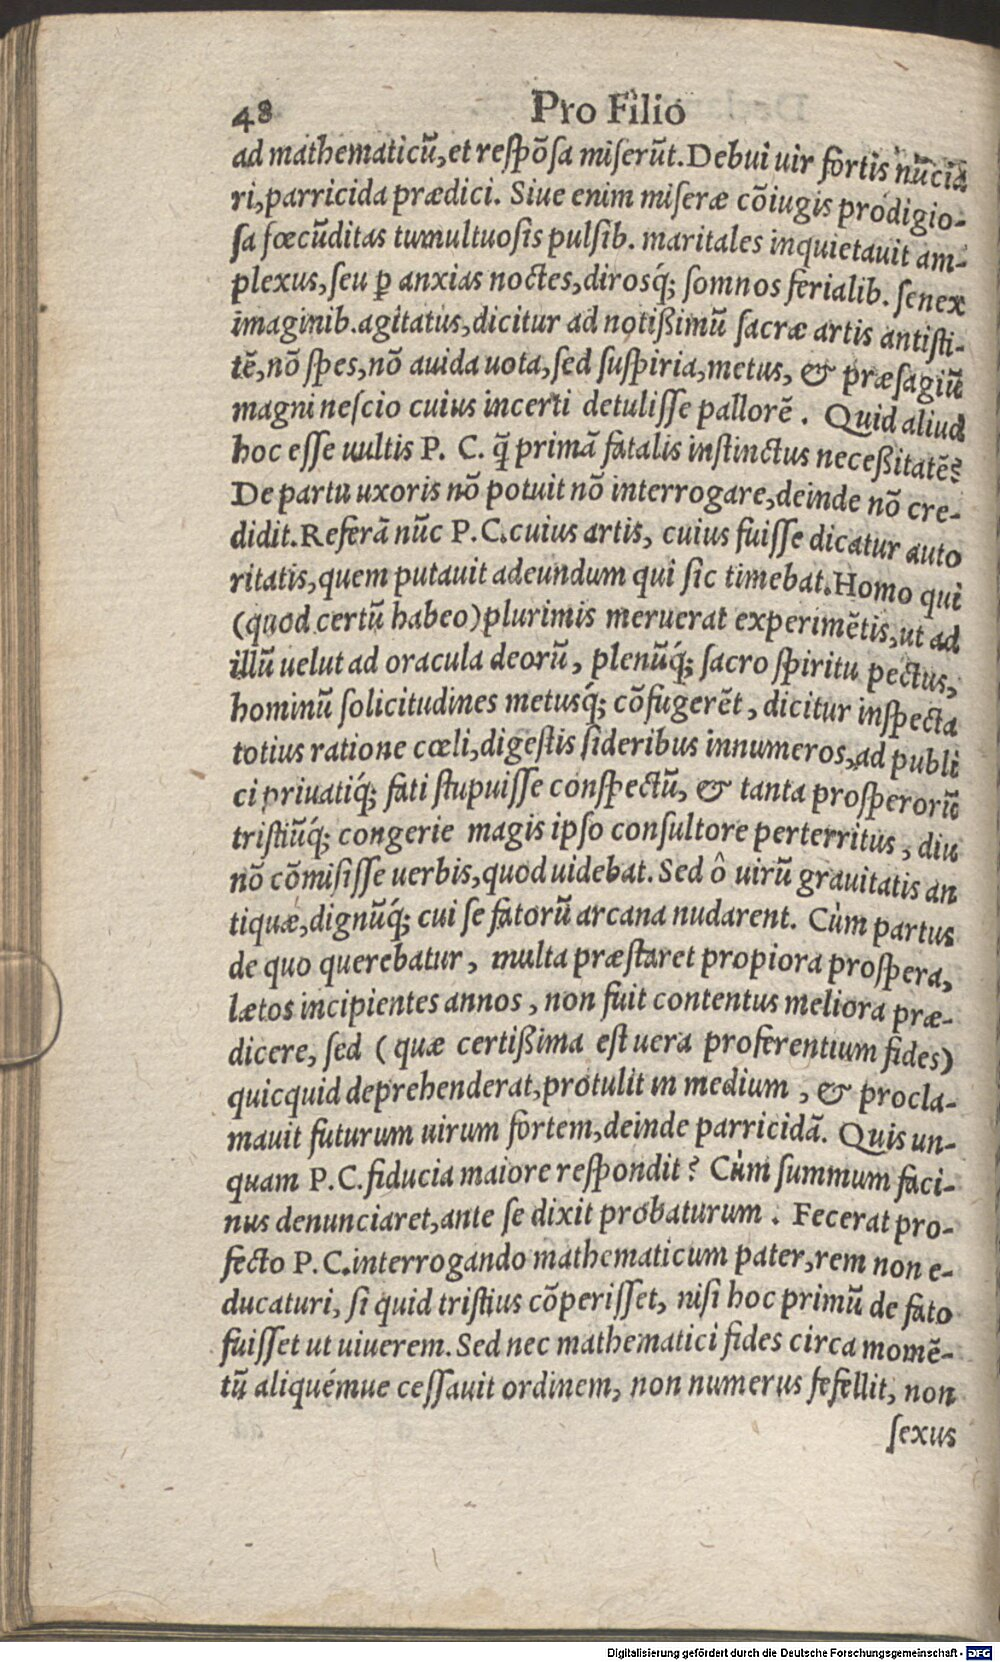 48 Pro Filio
ad mathematicū, et respōsa miserūt. Debui uir fortis nūcia
ri, parricida prædici. Siue enim miseræ cōiugis prodigio-
sa fœcūditas tumultuosis pulsib. maritales inquietauit am-
plexus, seu ꝑ anxias noctes, dirosq́; somnos ferialib. senex
imaginib. agitatus, dicitur ad notißimū sacræ artis antisti-
tē, nō spes, nō auida uota, sed suspiria, metus, & præsagiū
magni nescio cuius incerti detulisse pallorē. Quid aliud
hoc esse uultis P. C. q̄ primā fatalis instinctus neceßitatē?
De partu uxoris nō potuit nō interrogare, deinde nō cre-
didit. Referā nūc P. C. cuius artis, cuius fuisse dicatur auto
ritatis, quem putauit adeundum qui sic timebat. Homo qui
(quod certū habeo) plurimis meruerat experimētis, ut ad
illū uelut ad oracula deorū, plenūq́; sacro spiritu pectus,
hominū solicitudines metusq́; cōfugerēt, dicitur inspecta
totius ratione cœli, digestis sideribus innumeros, ad publi
ci priuatiq́; fati stupuisse conspectū, & tanta prosperorū
tristiūq́; congerie magis ipso consultore perterritus, diu
nō cōmisisse uerbis, quod uidebat. Sed ô uirū grauitatis an
tiquæ, dignūq́; cui se fatorū arcana nudarent. Cùm partus
de quo querebatur, multa præstaret propiora prospera,
lætos incipientes annos, non fuit contentus meliora præ-
dicere, sed (quæ certißima est uera proferentium fides)
quicquid deprehenderat, protulit in medium, & procla-
mauit futurum uirum fortem, deinde parricidā. Quis un-
quam P. C. fiducia maiore respondit? Cùm summum faci-
nus denunciaret, ante se dixit probaturum. Fecerat pro-
fecto P. C. interrogando mathematicum pater, rem non e-
ducaturi, si quid tristius cōperisset, nisi hoc primū de fato
fuisset ut uiuerem. Sed nec mathematici fides circa momē-
tū aliquémue cessauit ordinem, non numerus fefellit, non
sexus
Digitalisierung gefördert durch die Deutsche Forschungsgemeinschaft - DFG